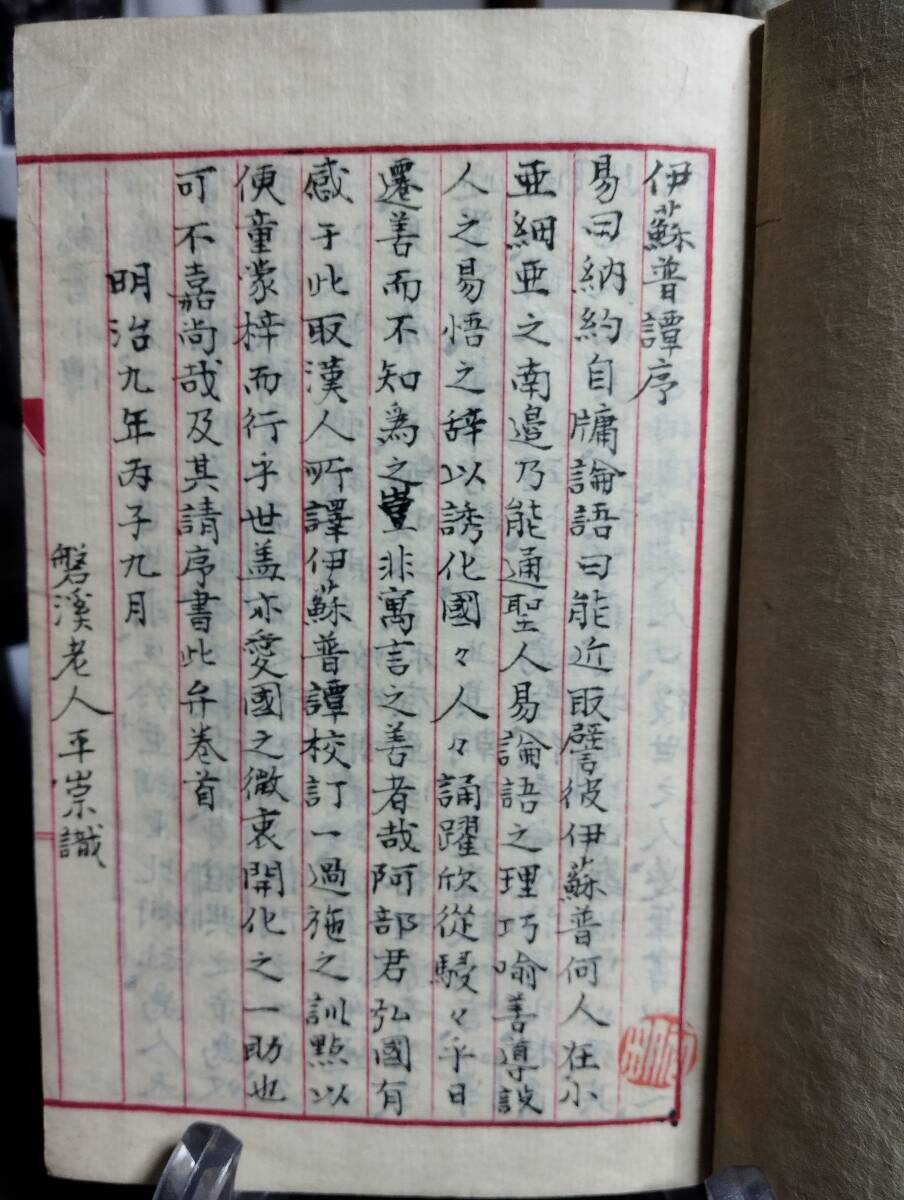 伊蘇普譚序
易曰納約自牖論語曰能近取譬彼伊蘇普何人在小
亜細亜之南邉乃能通聖人易論語之理巧喻善導設
人之易悟之辞以誘化國々人々誦躍欣從駸々乎日
遷善而不知為之豈非寓言之善者哉阿部君弘國有
感于此取漢人所譯伊蘇普譚校訂一過施之訓點以
便童蒙梓而行乎世盖亦愛國之微衷開化之一助也
可不嘉尚哉及其請序書此弁巻首
明治九年丙子九月
磐溪老人平崇識